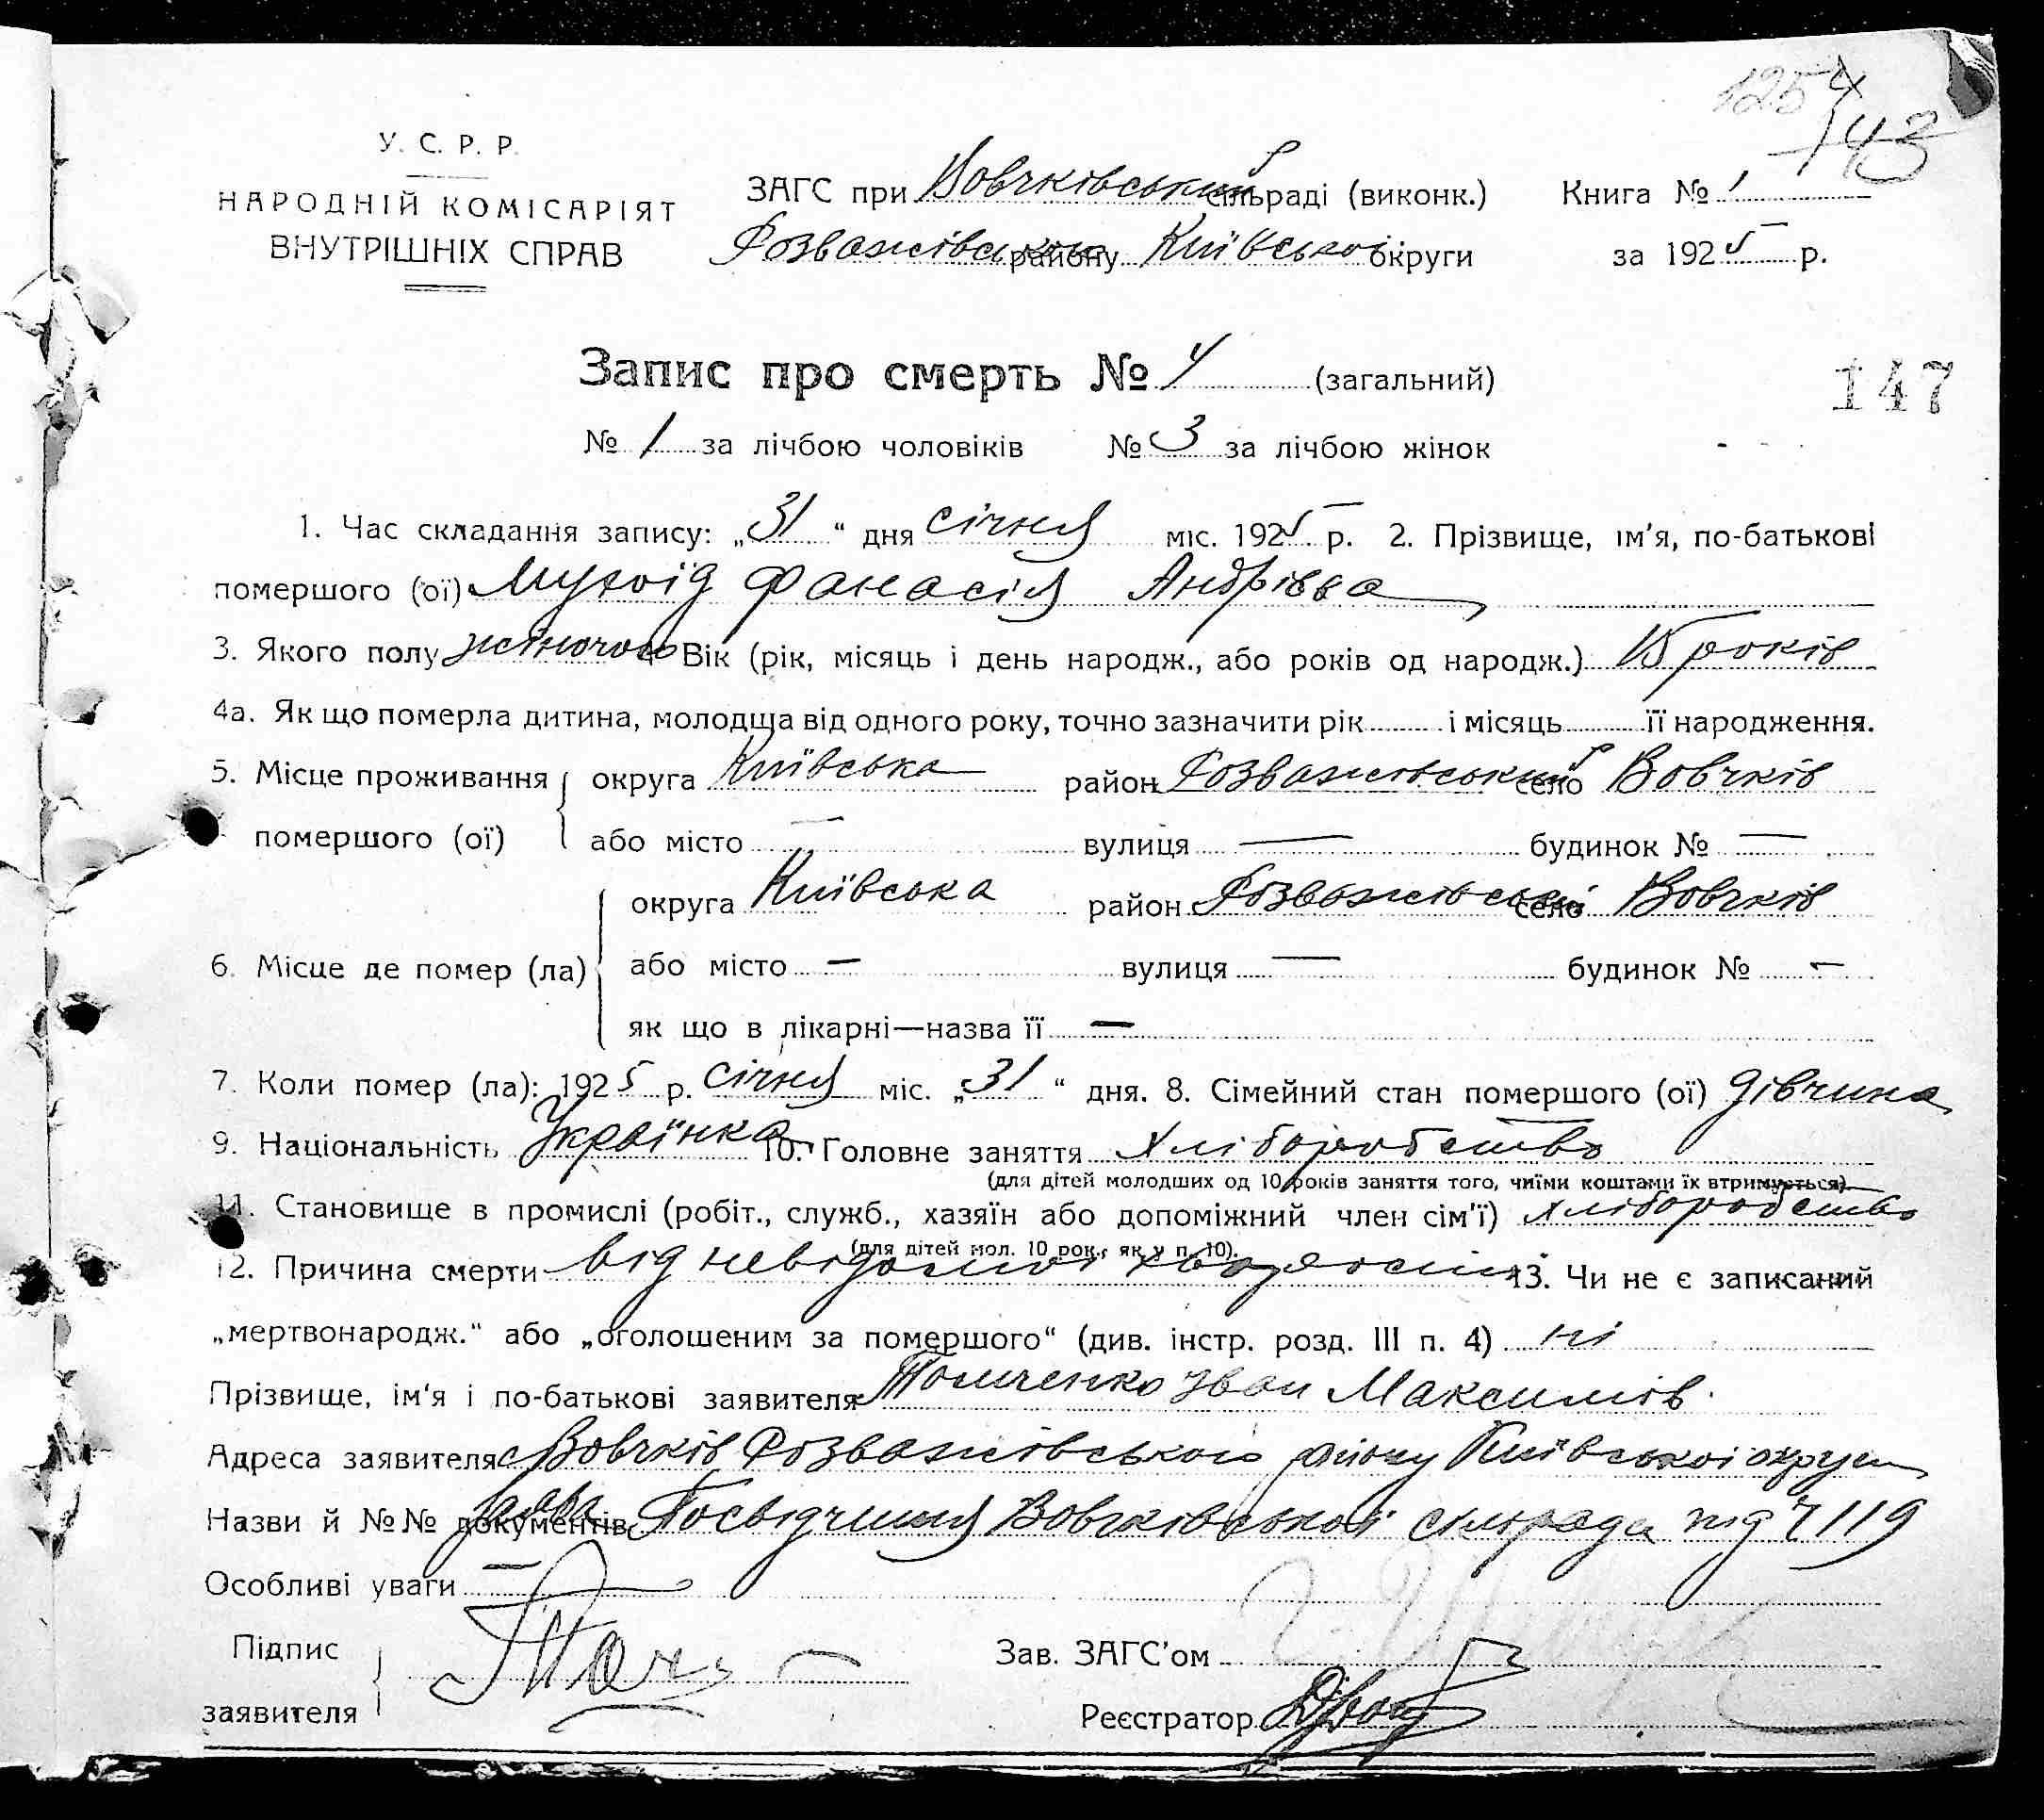 125 4
143
У. С. Р. Р.
НАРОДНІЙ КОМІСАРІЯТ
ВНУТРІШНІХ СПРАВ
ЗАГС при Вовчківський сільраді (виконк.) Книга № 1
Розважівського району Київської округи за 1925 р.
Запис про смерть № 4 (загальний)
147
№ 1 за лічбою чоловіків № 3 за лічбою жінок
1. Час складання запису: „31“ дня січня міс. 1925 р. 2. Прізвище, ім'я, по-батькові
помершого (ої) Мухоїд Фанасія Андрівва
3. Якого полу жіночого 4. Вік (рік, місяць і день народж., або років од народж.) 15 років
4а. Як що померла дитина, молодща від одного року, точно зазначити рік і місяць її народження.
5. Місце проживання помершого (ої) округа Київська район Розважівський село Вовчків
або місто — вулиця — будинок № —
6. Місце де помер (ла) округа Київська район Розважівські село Вовчків
або місто — вулиця — будинок № —
як що в лікарні—назва її —
7. Коли помер (ла): 1925 р. січня міс. „31“ дня. 8. Сімейний стан помершого (ої) дівчина
9. Національність Українка 10. Головне заняття Хліборобство
(для дітей молодших од 10 років заняття того, чиїми коштами їх втримується)
11. Становище в промислі (робіт., служб., хазяїн або допоміжний член сім'ї) хліборобство
(для дітей мол. 10 рок., як у п. 10).
12. Причина смерти від невідомої 13. Чи не є записаний
„мертвонародж.“ або „оголошеним за помершого“ (див. інстр. розд. III п. 4) ні
Прізвище, ім'я і по-батькові заявителя Іван Максимів
Адреса заявителя с Вовчків Розважівського району Київської округи
Назви й №№ документів заява Посвідчення Вовчківської сільради під ч 119
Особливі уваги —
Підпис заявителя
Зав. ЗАГС'ом
Реєстратор